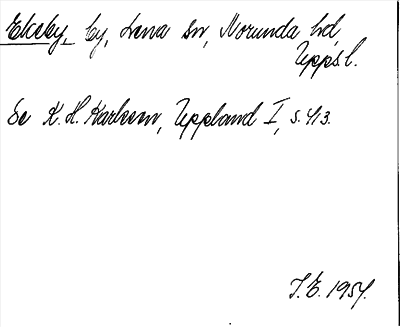 Ekeby, by, Lena sn, Norunda hd,
Uppsl.
Se K. H. Karlsson, Uppland I, s. 413.
J. E. 1954.